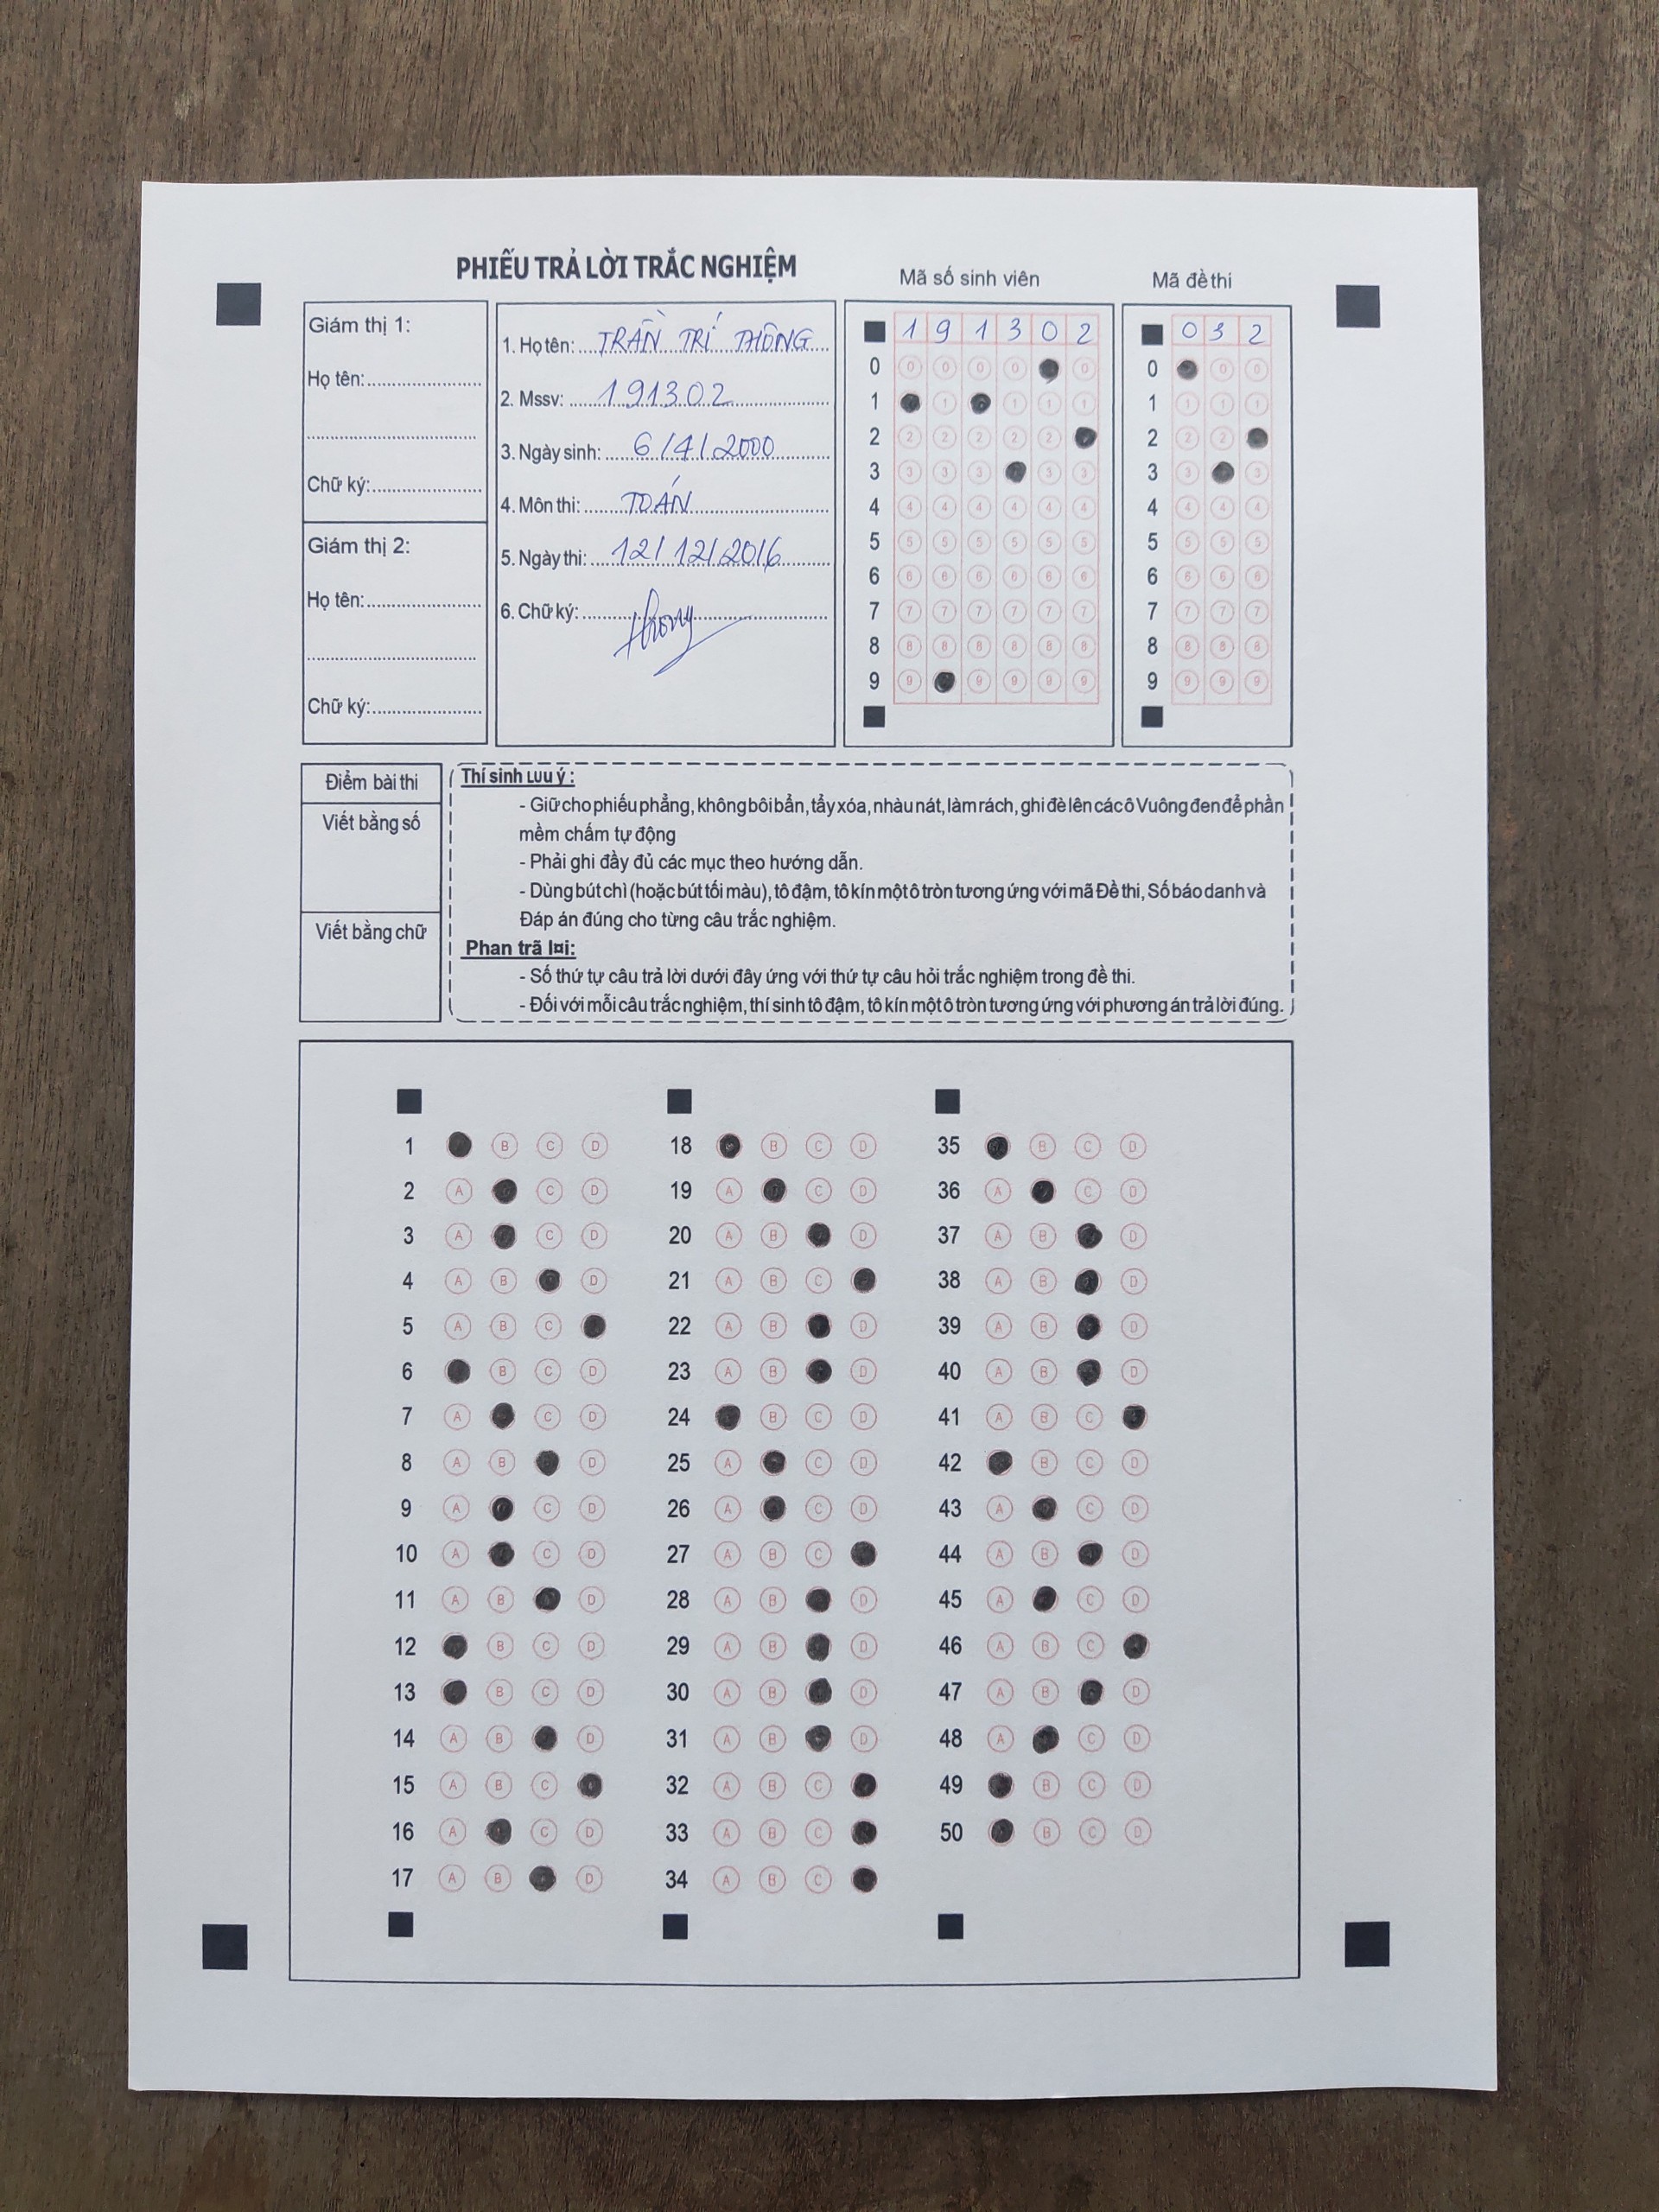 PHIẾU TRẢ LỜI TRẮC NGHIỆM
Mã số sinh viên
Mã đề thi
Giám thị 1:
Họ tên:
Chữ ký:
Giám thị 2:
Họ tên:
Chữ ký:
1. Họ tên: TRẦN TRÍ THÔNG
2. Mssv: 191302
3. Ngày sinh: 6/4/2000
4. Môn thi: TOÁN
5. Ngày thi: 12/12/2016
6. Chữ ký: thong
1 9 1 3 0 2
0 0 0 0 0 0
1 1 1 1 1
2 2 2 2 2 2
3 3 3 3 3 3
4 4 4 4 4 4 4
5 5 5 5 5 5 5
6 6 6 6 6 6 6
7 7 7 7 7 7 7
8 8 8 8 8 8 8
9 9 9 9 9 9
0 3 2
0 0 0
1 1 1 1
2 2 2
3 3 3
4 4 4 4
5 5 5 5
6 6 6 6
7 7 7 7
8 8 8 8
9 9 9 9
Điểm bài thi
Viết bằng số
Viết bằng chữ
Thí sinh LƯU ý :
- Giữ cho phiếu phẳng, không bôi bẩn, tẩy xóa, nhàu nát, làm rách, ghi đè lên các ô Vuông đen để phần
mềm chấm tự động
- Phải ghi đầy đủ các mục theo hướng dẫn.
- Dùng bút chì (hoặc bút tối màu), tô đậm, tô kín một ô tròn tương ứng với mã Đề thi, Số báo danh và
Đáp án đúng cho từng câu trắc nghiệm.
Phan trã l¤i:
- Số thứ tự câu trả lời dưới đây ứng với thứ tự câu hỏi trắc nghiệm trong đề thi.
- Đối với mỗi câu trắc nghiệm, thí sinh tô đậm, tô kín một ô tròn tương ứng với phương án trả lời đúng.
1 B C D
2 A C D
3 A C D
4 A B D
5 A B C
6 B C D
7 A C D
8 A B D
9 A C D
10 A C D
11 A B D
12 B C D
13 B C D
14 A B D
15 A B C
16 A C D
17 A B D
18 B C D
19 A C D
20 A B D
21 A B C
22 A B D
23 A B D
24 B C D
25 A C D
26 A C D
27 A B C
28 A B D
29 A B D
30 A B D
31 A B D
32 A B C
33 A B C
34 A B C
35 B C D
36 A C D
37 A B D
38 A B D
39 A B D
40 A B D
41 A B C
42 B C D
43 A C D
44 A B D
45 A C D
46 A B C
47 A B D
48 A C D
49 B C D
50 B C D